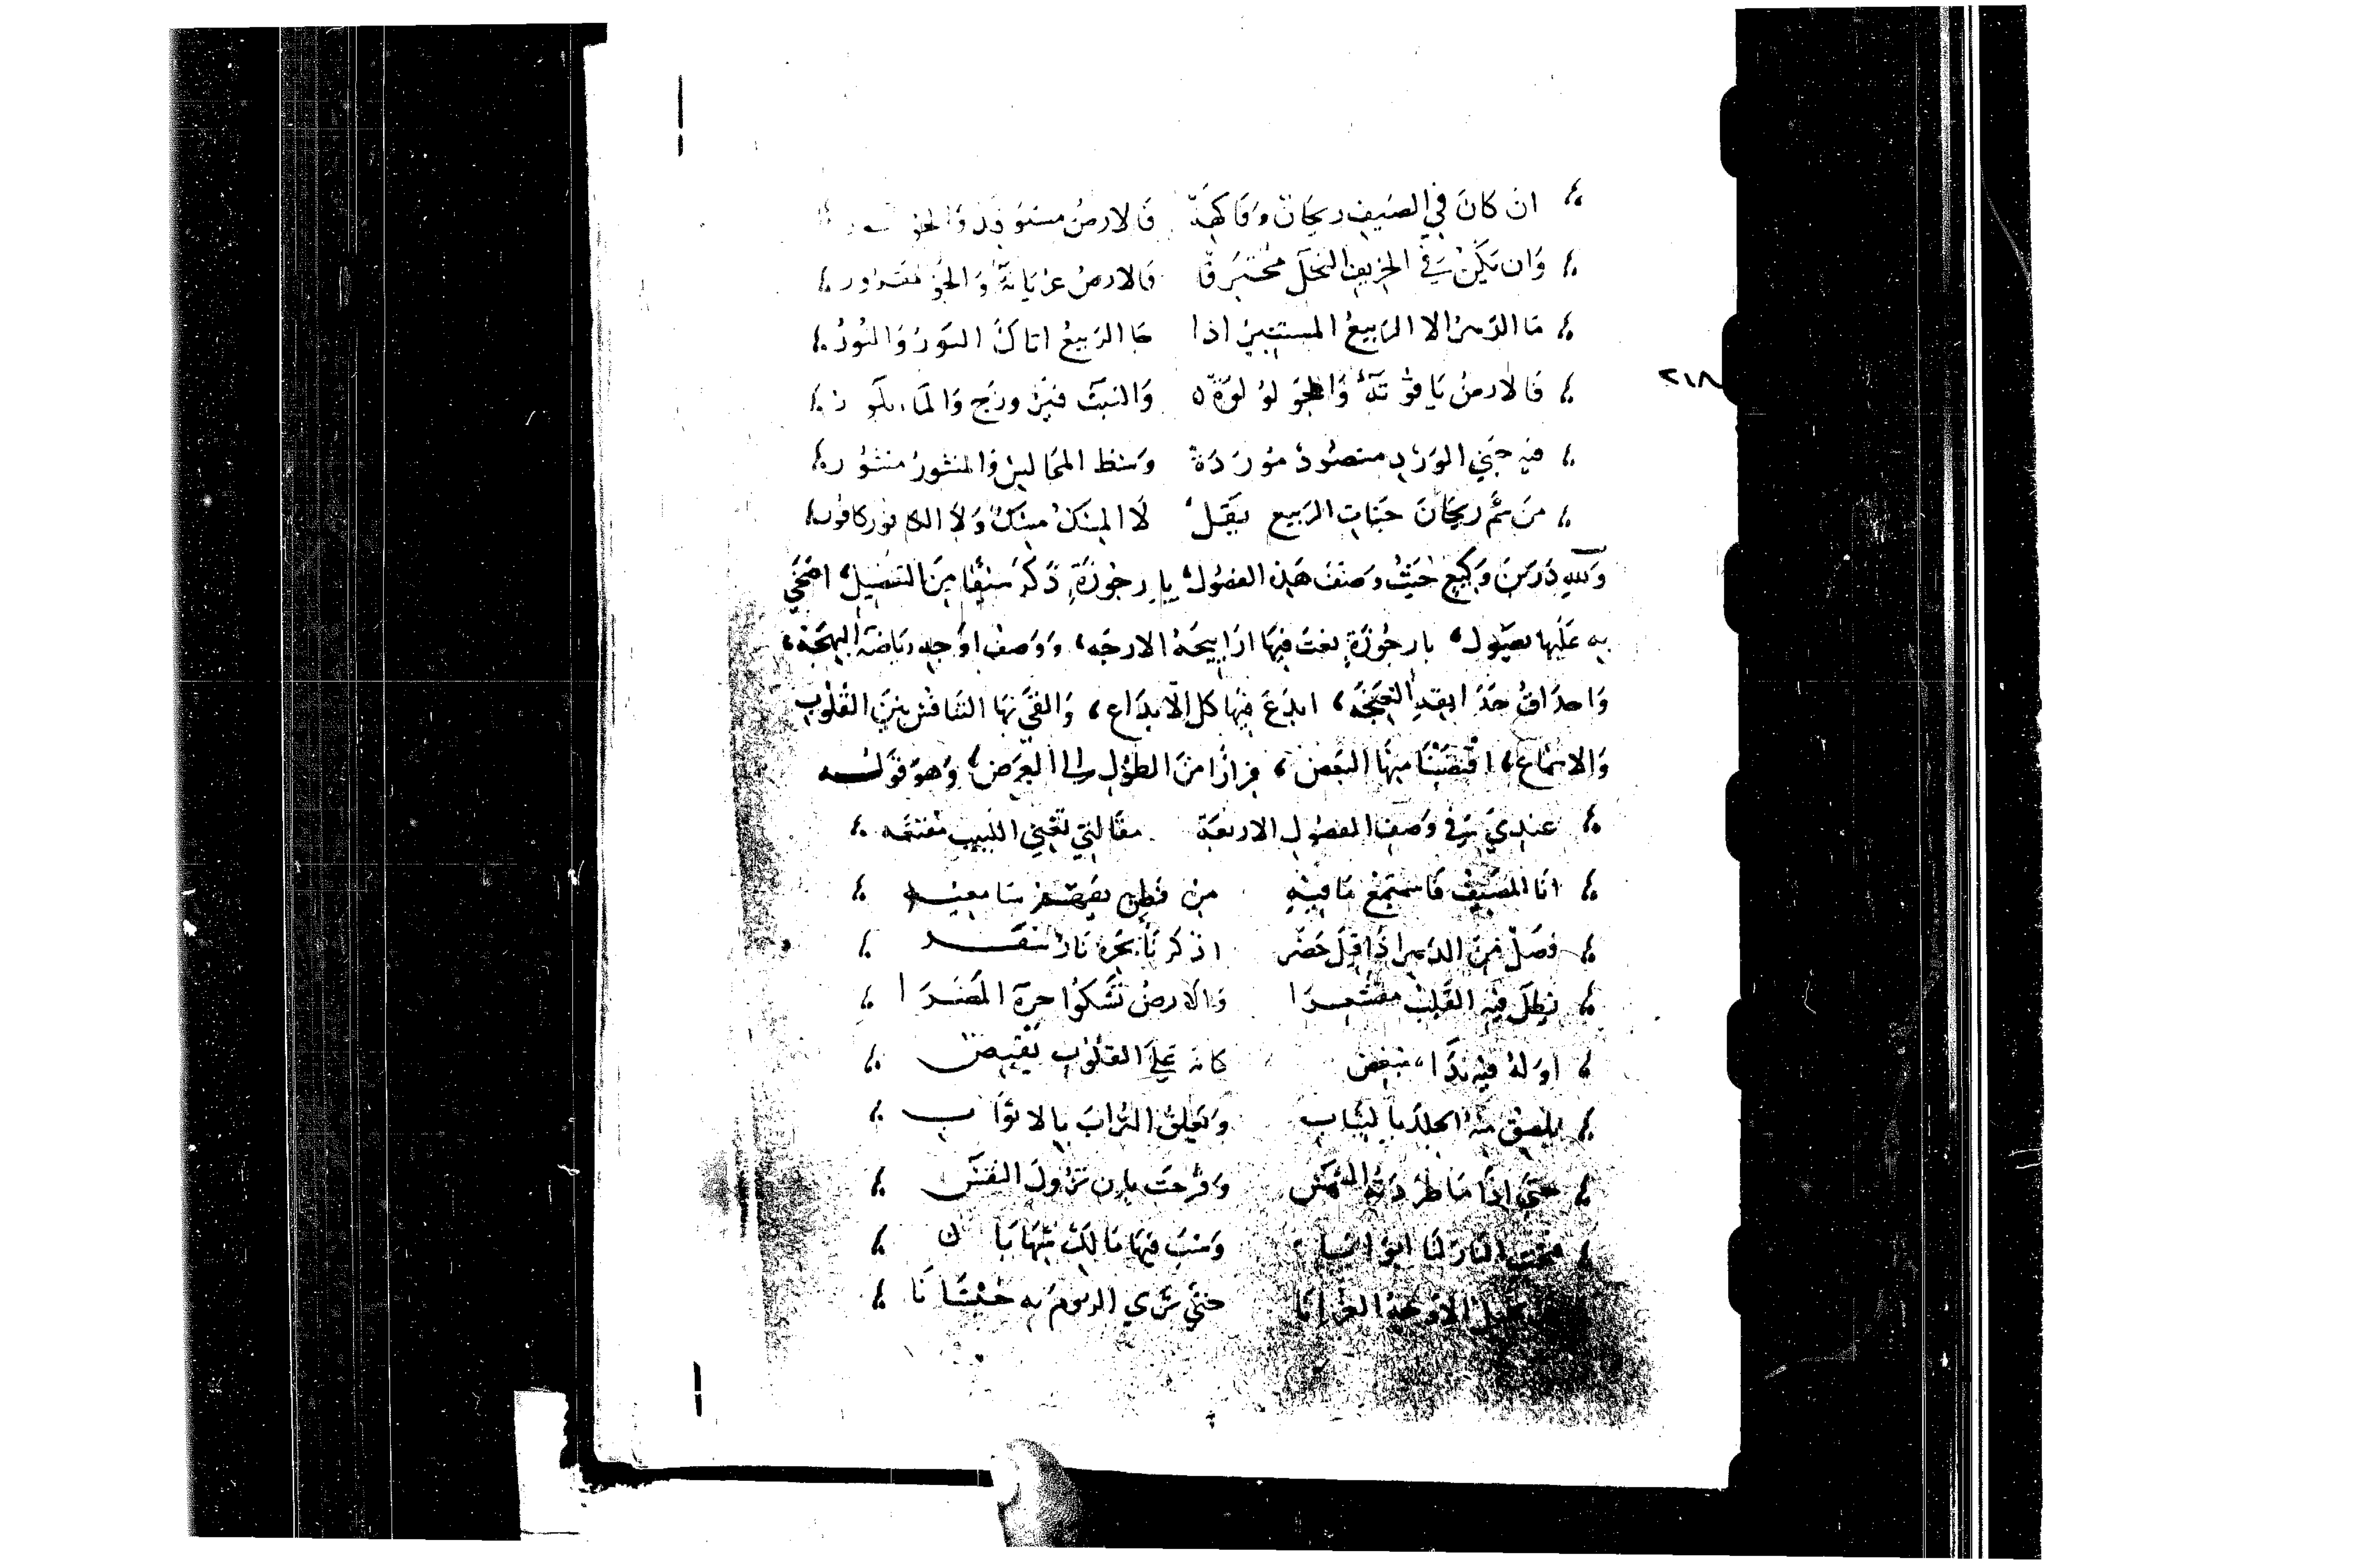 ان كانَ في الصَيف ريحَان وَفَاكهَة فَالارضُ مستوقد وَالجو
وَان يَكُنْ في الخريف النخل مخترَقًا فَالارضُ عريَانَة وَالجو مقرور
مَا الدَهرُ الا الرَبيعُ المستنيرُ اذا جَا الربيعُ اتاكَ النَورُ وَالنُورُ
فَالارضُ يَاقوتَة وَالجَو لولوَة وَالنبتُ فيروزج وَالمَا بلور
فيه جَنيُ الوَردِ منضُودٌ مورَدَة وسط المجَالسِ وَالمنثورُ منثور
مَن شمَّ ريحَانَ جَنات الربيع يقل لا المسكُ مسكٌ وَلا الكافور كافور
وَلله دَر ابن وَكيع حَيثُ وصَفَ هَذه الفصُول، بارجوزَةٍ ذكر منها مِنَ التفضيل، اضحَي
به عَلَيها يصُول، بارجُوزَةٍ نعتَ فيهَا ارَاييحَهُ الارجَه، وَوَصفَ اوجه رياضه البهجَه،
وَاحدَاقُ حدَايقه الغنجَه، ابدَعَ فيهَا كل الابدَاع، وَالقَي بهَا التنافسَ بينَ القلُوب
وَالاسمَاع، اقتضَبنَا منهَا البَعض، فرارًا منَ الطول الى العرَض، وَهوَ قوله
عندِيَ في وَصف الفصُولِ الاربعَة مقَالتي تغني اللبيبَ مقنعَه
امَا المَصيفُ فَاستمِع مَا فيهِ مِن فَطِنٍ يفهم سَامعيه
فصَلٌ مِنَ الدَهر اذَا قيلَ حَضَر اذكرنَا بحرِه نَارَ سَقَر
يَظل فيهِ القَلبُ مقشعرَا وَالارضُ تشكوا حرَه المضرَا
اولهُ فيهِ ندًا منغص كانه عَلي القلُوب يقبض
يلصقُ منهُ الجلدُ بالثياب وَيعلقُ الترابَ بالاثوَاب
حتي اذَا مَا طَردَته الشمسُ وَفرحت بان تزولَ النفس
فتحت النارُ لنا ابوَابا وَشبَ فيهَا مَالكٌ شهَابَا
الاوجهَ الغرانَا حتي تري الرومَ به حبشانَا
٢١٨